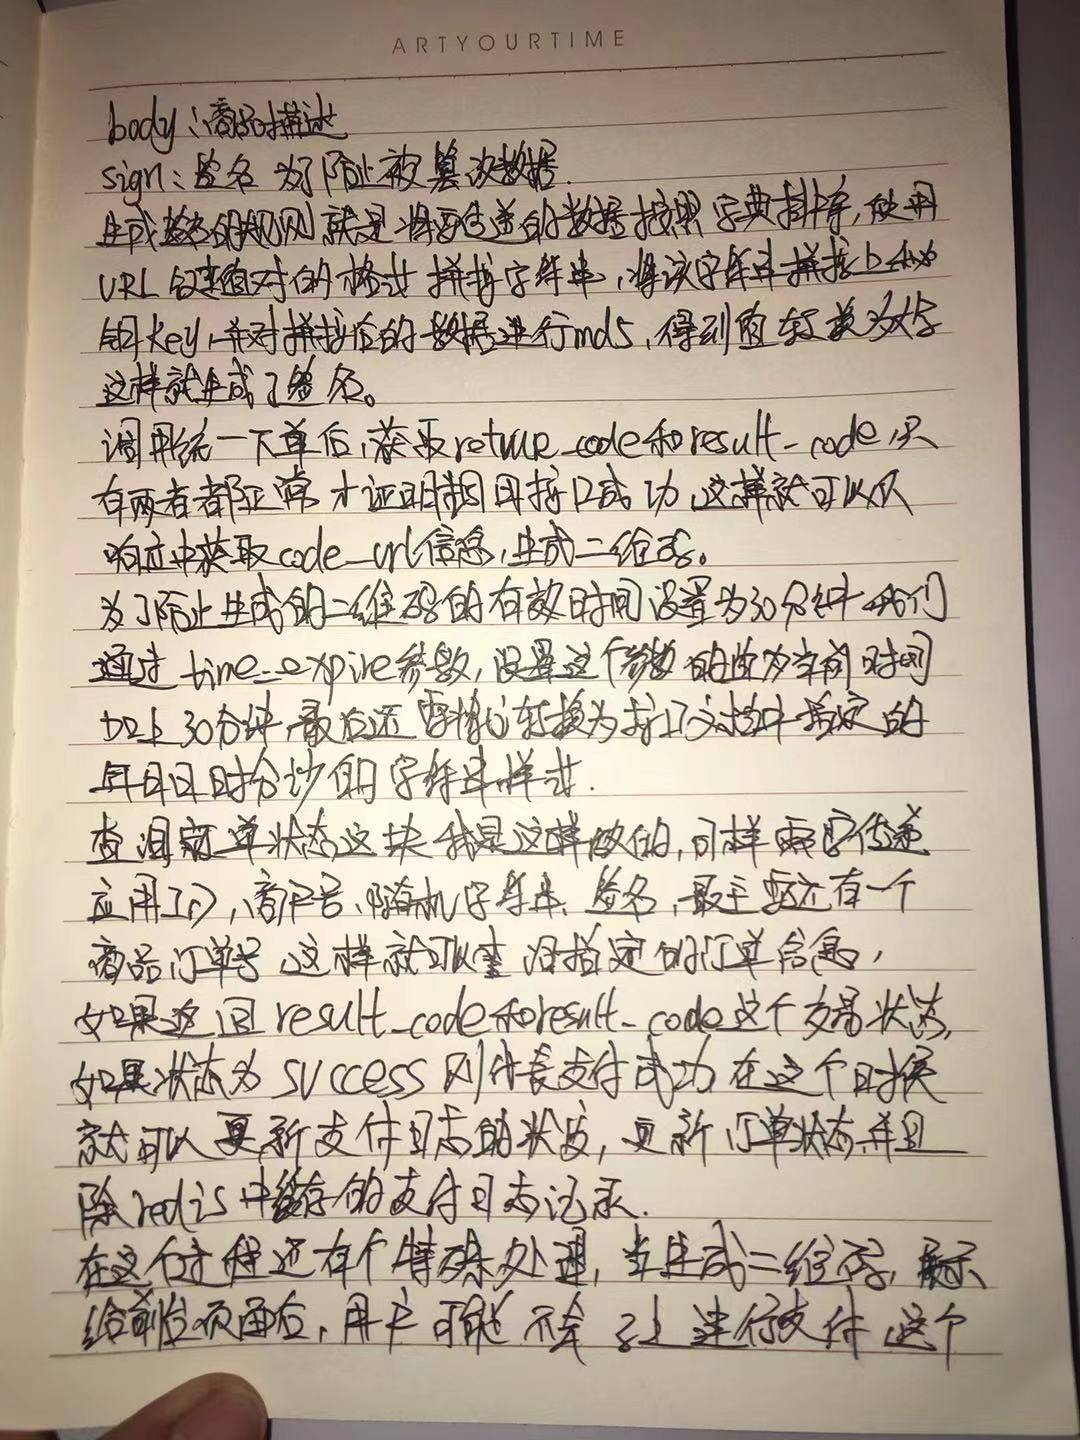 ARTYOURTIME
body:商品描述
sign:签名 为了防止被篡改数据.
生成签名的规则就是将要传递的数据按照字典排序,使用
URL键值对的格式 拼接字符串,将该字符串拼接上私
钥key,并对拼接后的数据进行md5,得到值转换为大写
这样就生成了签名。
调用统一下单后,获取return_code和result_code,只
有两者都正常才证明调用接口成功,这样就可以从
响应中获取code_url信息,生成二维码。
为了防止生成的二维码的有效时间设置为30分钟我们
通过time_expire参数,设置这个参数的值为当前时间
加上30分钟,最后还需将它转换为接口文档中指定的
年月日时分秒的字符串样式.
查询订单状态这块我是这样做的,同样需要传递
应用ID,商户号,随机字符串、签名,最主要还有一个
商品订单号,这样就可以查询指定的订单信息,
如果返回result_code和result_code这个交易状态,
如果状态为success则代表支付成功在这个时候
就可以更新支付日志的状态,更新订单状态并且
除redis中缓存的支付日志记录.
在这个过程还有个特殊处理,当生成二维码,展示
给前台页面后,用户可能不会马上进行支付,这个